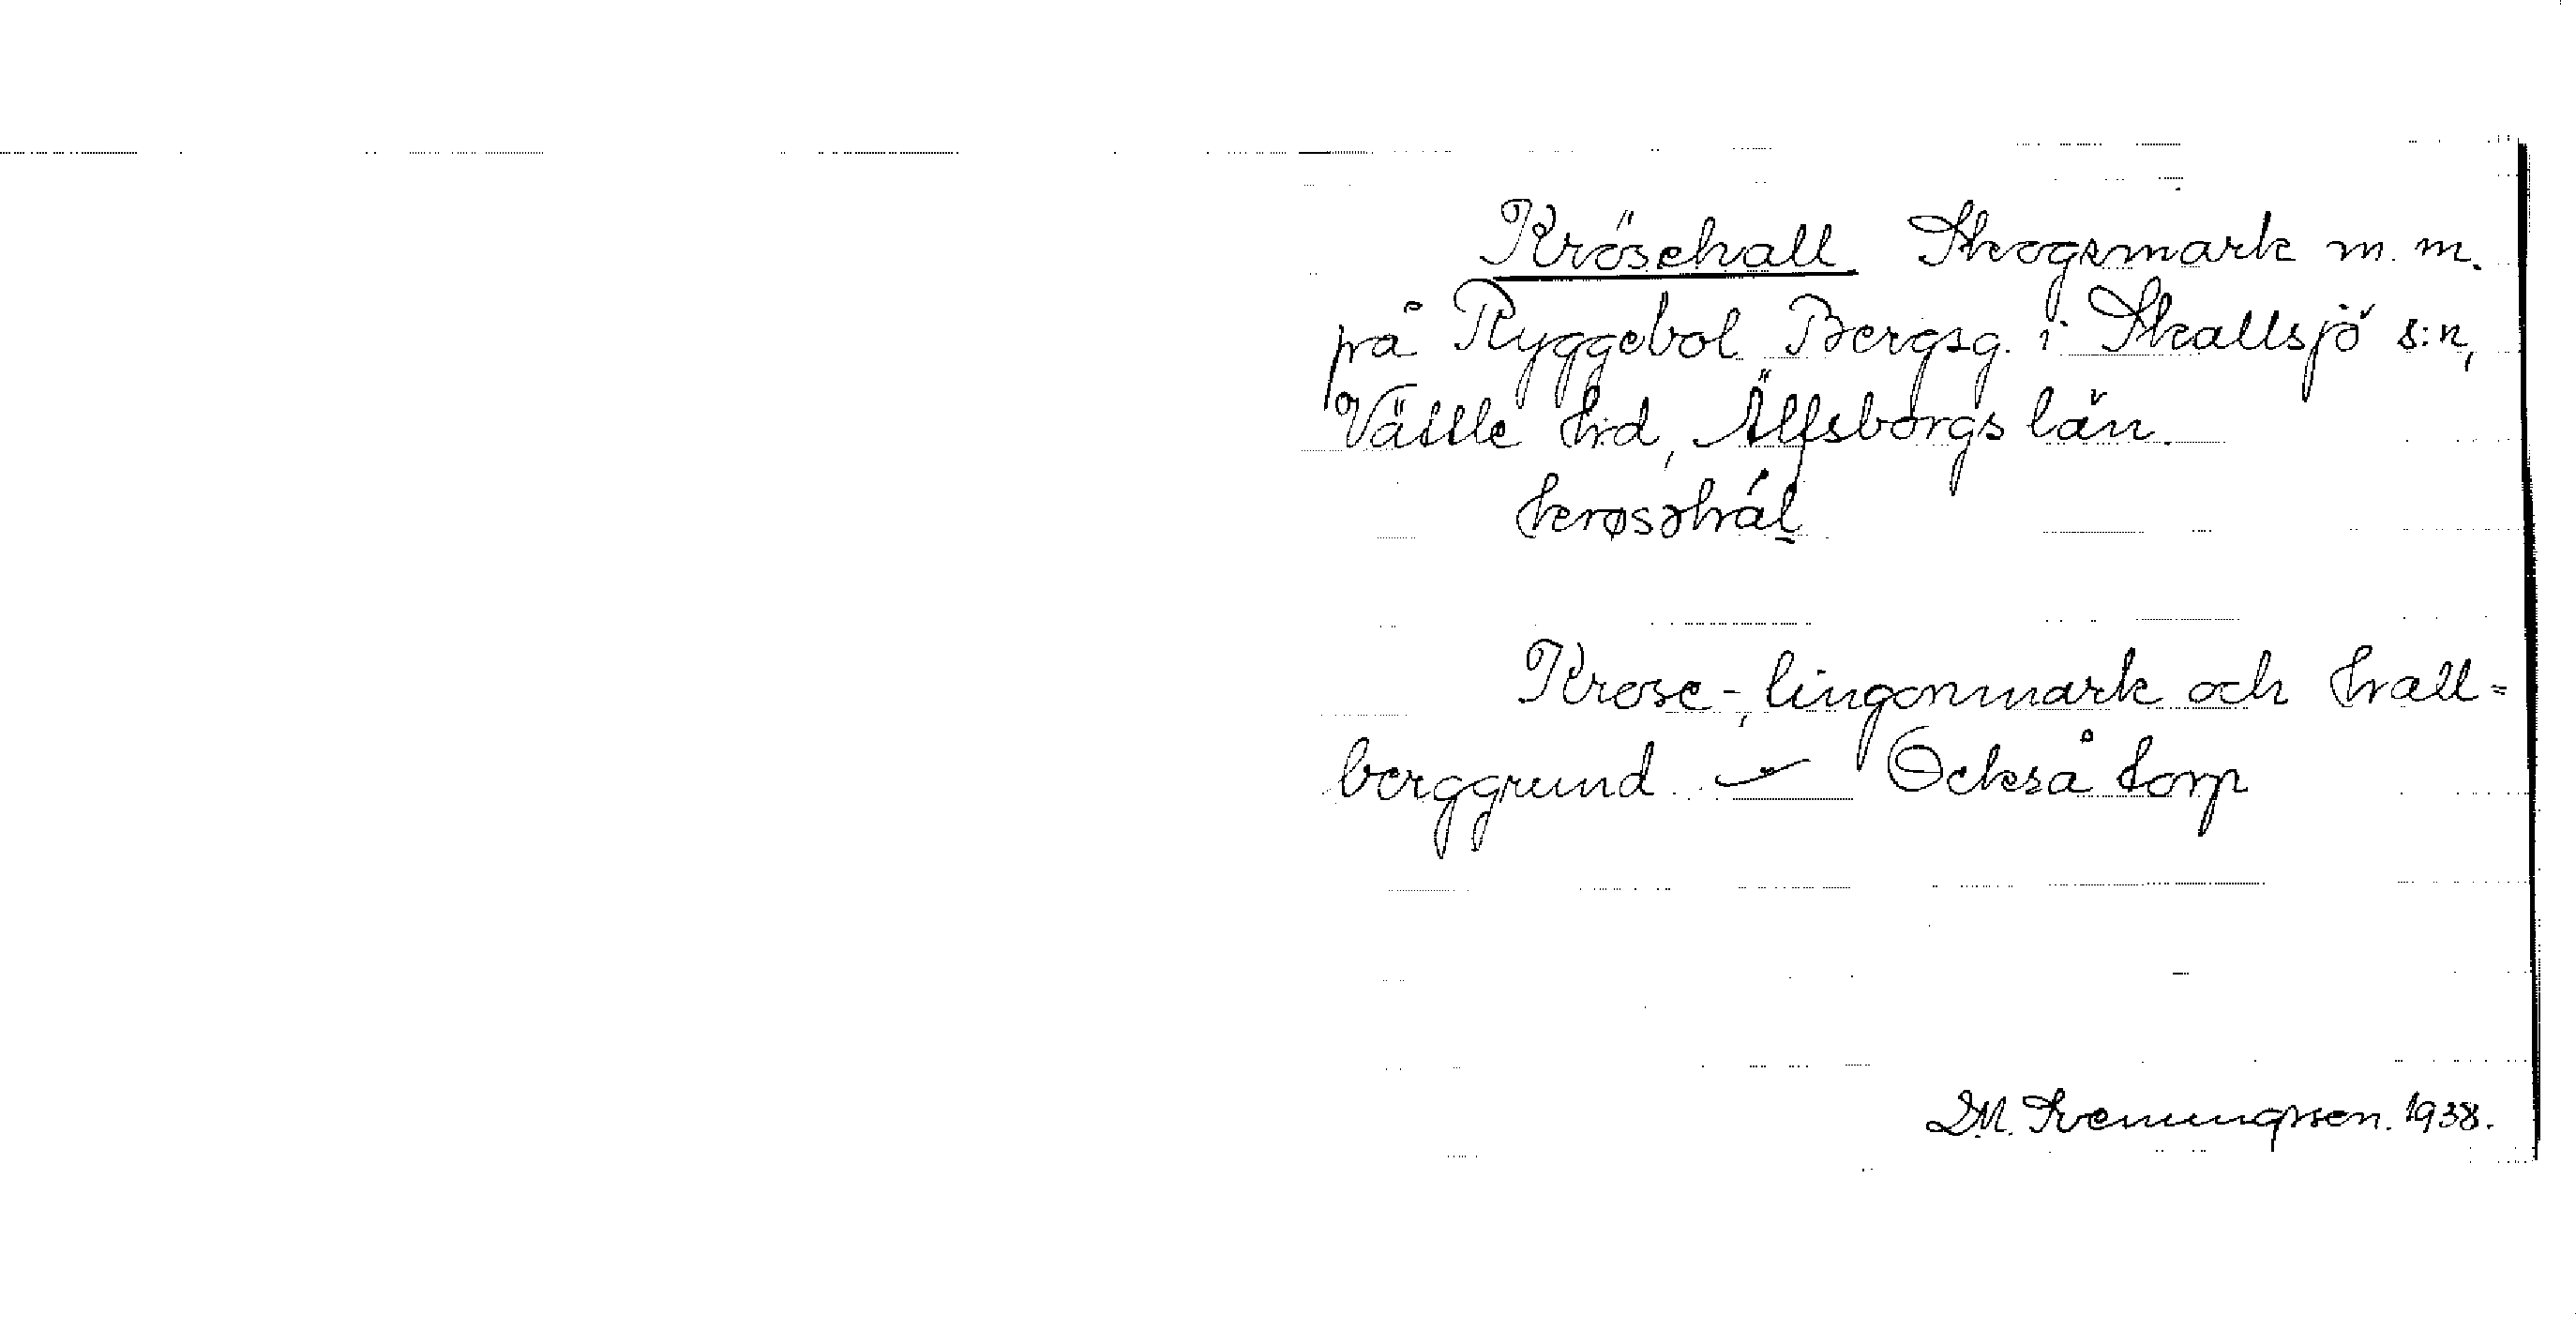 Krösehall Skogsmark m. m.
på Ryggebol Bergsg. i Skallsjö s:n,
Vättle hd, Älfsborgs län.
krøsəhál
Krose-, lingonmark och hall-
berggrund – Också torp
D.M. Svenungsson. 1938.